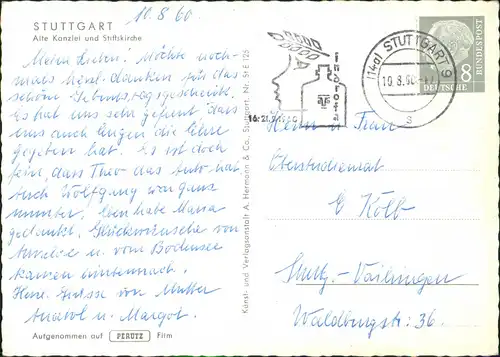 10.8.60
STUTTGART
Alte Kanzlei und Stiftskirche
Meine Lieben! Möchte noch-
mals herzl. danken für das
schöne Geburtstagsgeschenk.
Es hat uns sehr gefreut dass
uns auch Eugen die Ehre
gegeben hat. Es ist doch
fein, dass Theo das Auto hat
Auch Wolfgang war ganz
munter, eben habe Maria
gedankt. Glückwünsche von
Annelose u. vom Bodensee
kamen hintennach.
Herzl. Grüsse von Mutter
u. Margot.
Aufgenommen auf PERUTZ Film
Kunst- und Verlagsanstalt A. Hermann & Co., Stuttgart, Nr. St E 125
16.-21.
(14a) STUTTGART 9
10.8.60
s
DEUTSCHE BUNDESPOST
8
Herrn u. Frau
Oberstudienrat
E Kolb
Stuttg.-Vaihingen
Waldburgstr. 36.